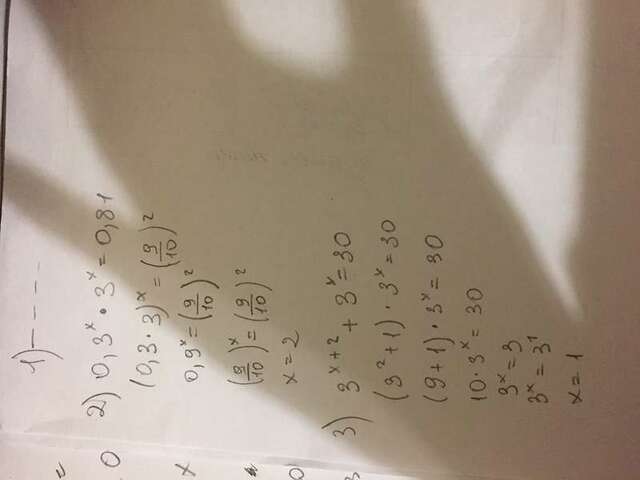 1) - - - -
2) 0,3^x · 3^x = 0,81
(0,3 · 3)^x = (9/10)^2
0,9^x = (9/10)^2
(9/10)^x = (9/10)^2
x = 2
3) 3^{x+2} + 3^x = 30
(3^2 + 1) · 3^x = 30
(9 + 1) · 3^x = 30
10 · 3^x = 30
3^x = 3
3^x = 3^1
x = 1